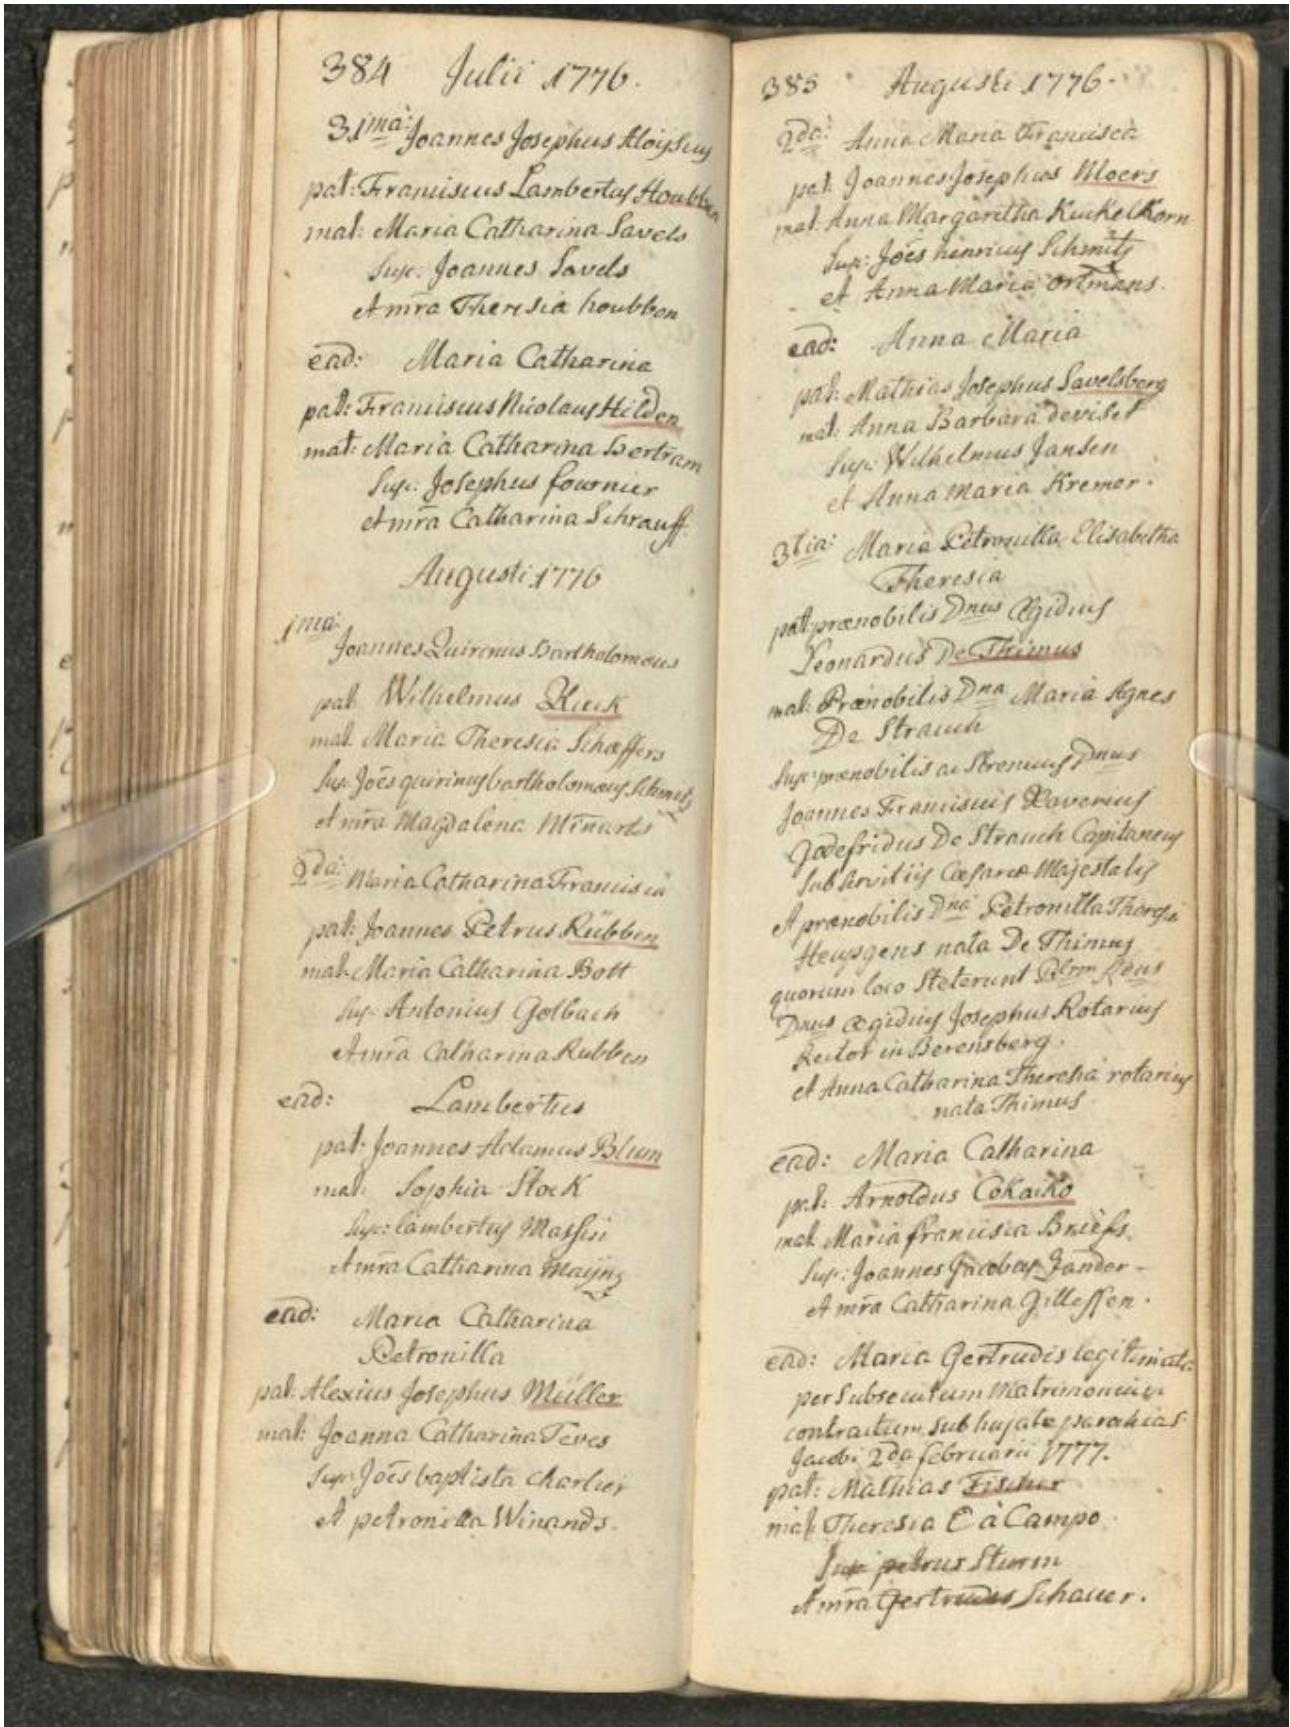 384 Julii 1776.
31ma: Joannes Josephus Aloysius
pat: Franciscus Lambertus Houbben
mat: Maria Catharina Savels
Sup: Joannes Savels
et mr̄a Theresia houbben
ead: Maria Catharina
pat: Franciscus Nicolaus Hilden
mat: Maria Catharina Bertram
Sup: Josephus fournier
et mr̄a Catharina Schrauff.
Augusti 1776
1ma: Joannes Quirinus Bartholomeus
pat: Wilhelmus
mat: Maria Theresia Schæffers
Sup: Joēs quirinus bartholomæus Schmitz
et mr̄a Magdalena
2da: Maria Catharina Francisca
pat: Joannes Petrus Rübben
mat: Maria Catharina Bott
Sup: Antonius Golbach
et mr̄a Catharina Rubben
ead: Lambertus
pat: Joannes Adamus Blum
mat: Sophia Stock
Sup: lambertus Massin
et mr̄a Catharina
ead: Maria Catharina
Petronilla
pat: Alexius Josephus Müller
mat: Joanna Catharina Teves
Sup: Joēs baptista Charlier
et petronilla Winands.
385 Augusti 1776.
2da: Anna Maria Francisca
pat: Joannes Josephus Moers
mat: Anna Margaretha Kuckelkorn
Sup: Joēs henricus Schmitz
et Anna Maria ortmans.
ead: Anna Maria
pat: Mathias Josephus Savelsberg
mat: Anna Barbara deviset
Sup: Wilhelmus Jansen
et Anna Maria Kremer.
3tia: Maria Petronilla Elisabetha
Theresia
pat: prænobilis Dnus Ægidius
Leonardus De Thimus
mat: Prænobilis Dna Maria Agnes
De Strauch
Sup: prænobilis ac Strenuus Dnus
Joannes Franciscus Xaverius
Godefridus De Strauch Capitaneus
Sub Servitiis Cæsareæ Majestatis
et prænobilis Dna Petronilla Theresia
Heupgens nata De Thimus
quorum loco steterunt Plrm Rdus
Dnus ægidius Josephus Rotarius
Rector in Berensberg.
et Anna Catharina Theresia rotarius
nata Thimus
ead: Maria Catharina
pat: Arnoldus Cokacko
mat: Maria francisca Briefs
Sup: Joannes Jacobus Zander
et mr̄a Catharina Gillessen.
ead: Maria Gertrudis legitimata
per Subsecutum Matrimonium
contractum sub hujate parochia S.
Jacobi 2da februarii 1777.
pat: Mathias Fischer
mat: Theresia C à Campo
Sup: petrus Sturm
et mr̄a Gertrudis Schauer.